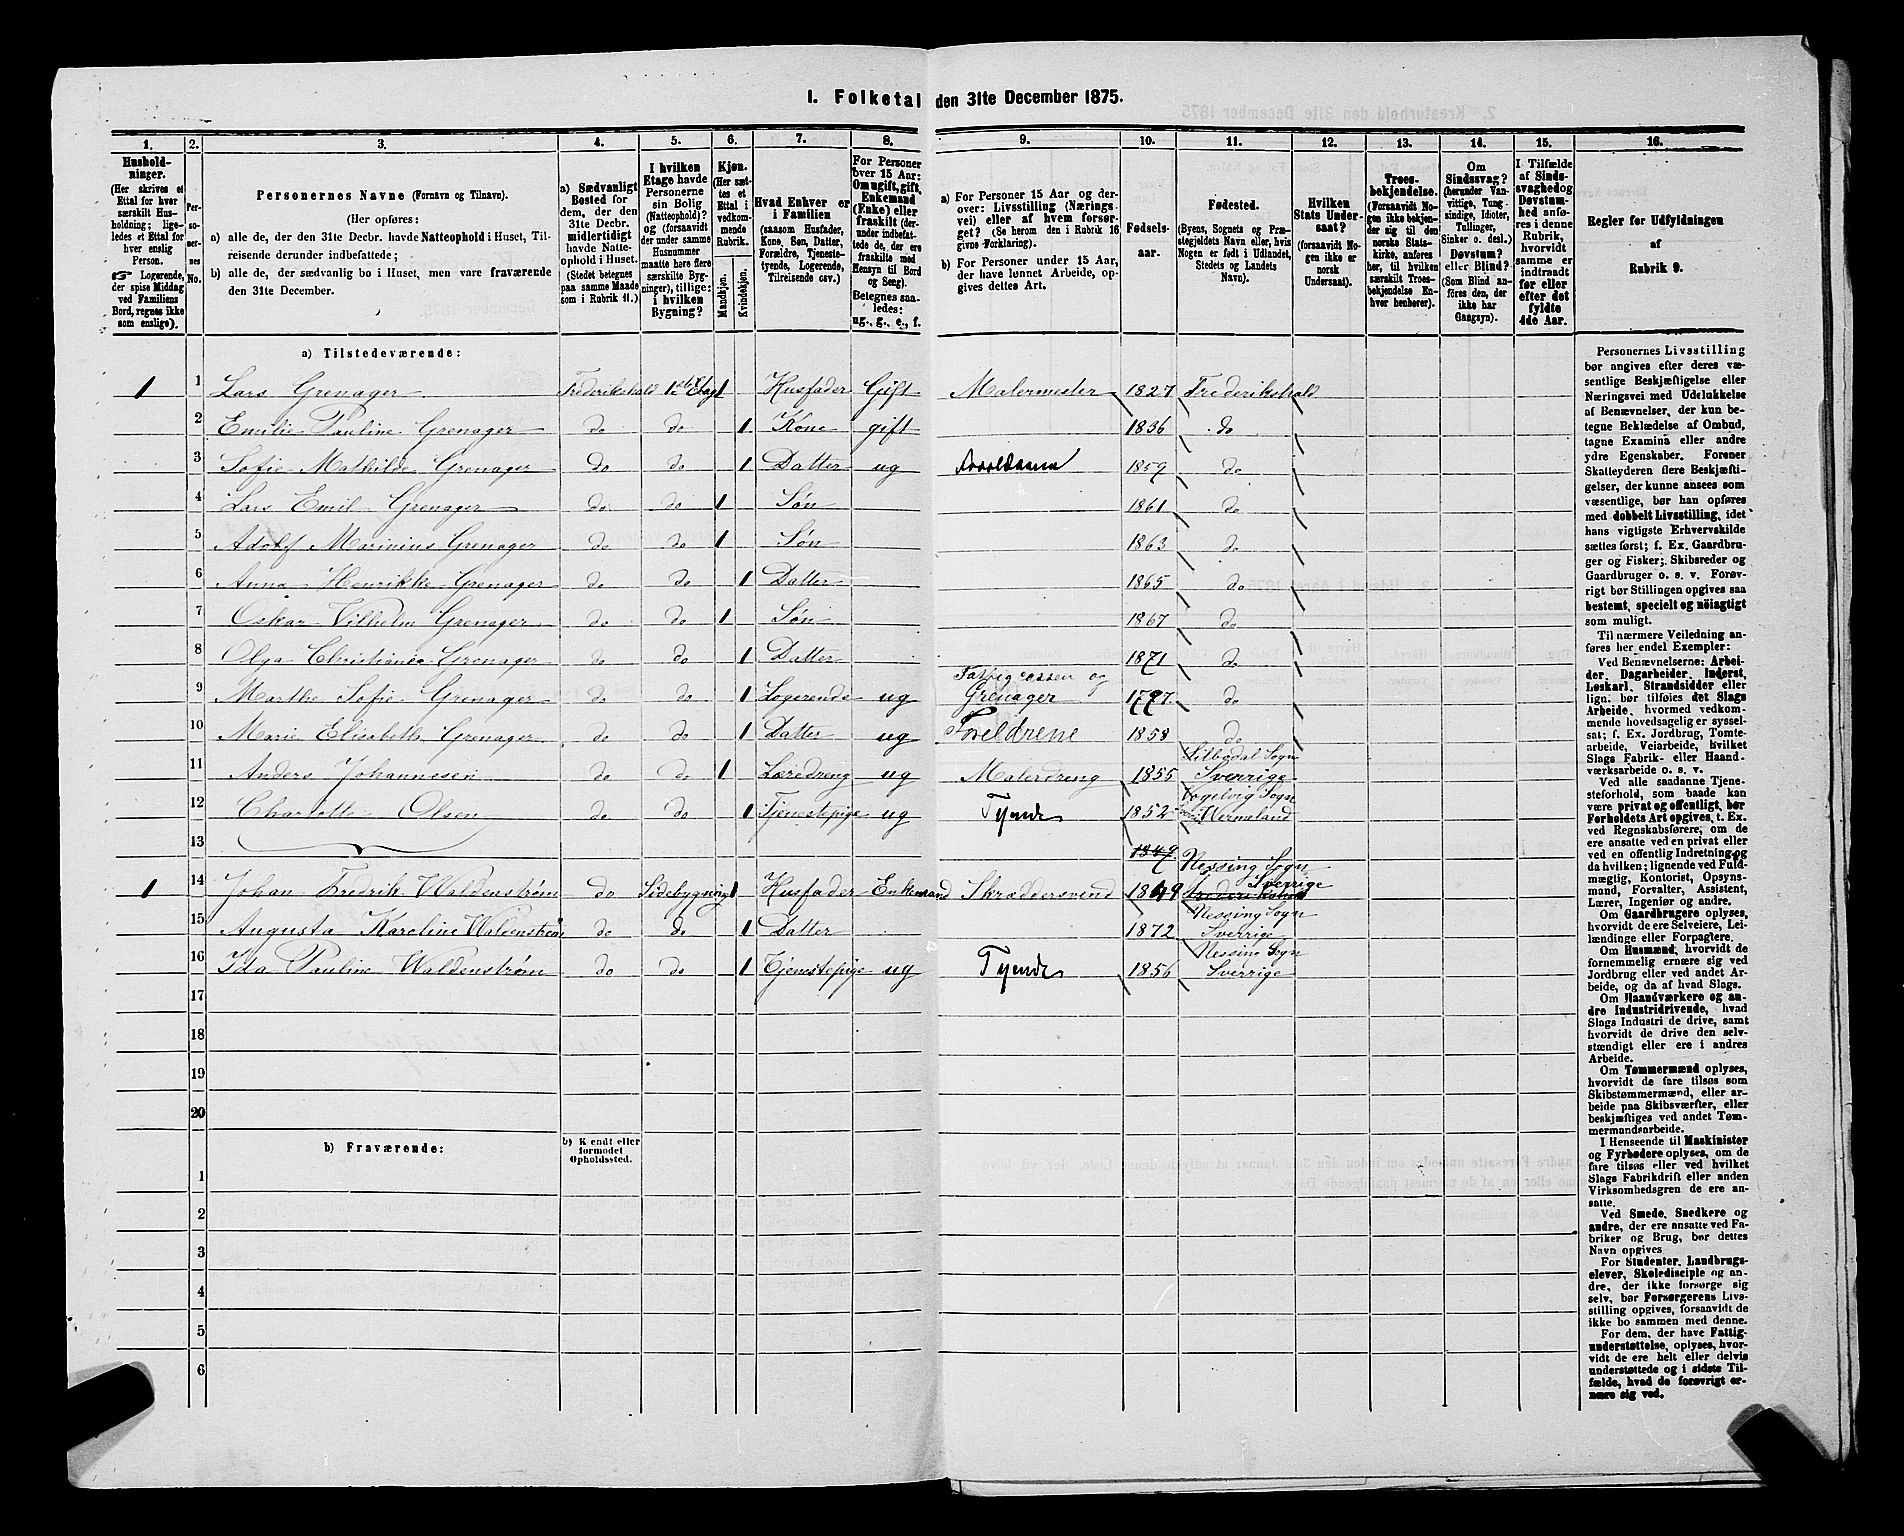 1. Folketal den 31te December 1875.
1. 2. 3. 4. 5. 6. 7. 8. 9. 10. 11. 12. 13. 14. 15. 16.
Hushold-
ninger.
(Her skrives et
Ettal for hver
særskilt Hus-
holdning; lige-
ledes et Ettal for
hver enslig
Person.
☞ Logerende,
der spise Middag
ved Familiens
Bord, regnes ikke
som enslige).
Per-
so-
ner-
nes
No.
Personernes Navne (Fornavn og Tilnavn).
(Her opføres:
a) alle de, der den 31te Decbr. havde Natteophold i Huset, Til-
reisende derunder indbefattede;
b) alle de, der sædvanlig bo i Huset, men vare fraværende
den 31te December.
a) Sædvanligt
Bosted for
dem, der den
31te Decbr.
midlertidigt
havde Natte-
ophold i Huset.
(Stedet betegnes
paa samme Maade
som i Rubrik 11.)
I hvilken
Etage havde
Personerne
sin Bolig
(Natteophold)?
og (forsaavidt
der under samme
Husnummer
maatte høre flere
særskilte Byg-
ninger), tillige:
i hvilken
Bygning?
Kjøn.
(Her sæt-
tes et
Ettal i
vedkom-
mende
Rubrik.
Mandkjøn.
Kvindekjøn.
Hvad Enhver er
i Familien
(saasom Husfader,
Kone, Søn, Datter,
Forældre, Tjeneste-
tyende, Logerende,
Tilreisende osv.)
For Personer
over 15 Aar:
Om ugift, gift,
Enkemand
(Enke) eller
fraskilt (der-
under indbefat-
tede de, der ere
fraskilte med
Hensyn til Bord
og Seng).
Betegnes saa-
ledes:
ug., g., e., f.
a) For Personer 15 Aar og der-
over: Livsstilling (Nærings-
vei) eller af hvem forsør-
get? (Se herom den i Rubrik 16
givne Forklaring).
b) For Personer under 15 Aar,
der have lønnet Arbeide, op-
gives dettes Art.
Fødsels-
aar.
Fødested.
(Byens, Sognets og Præ-
stegjeldets Navn eller, hvis
Nogen er født i Udlandet,
Stedets og Landets
Navn).
Hvilken
Stats Under-
saat?
(forsaavidt No-
gen ikke er
norsk
Undersaat).
Troes-
bekjendelse.
(Forsaavidt No-
gen ikke bekjen-
der sig til den
norske Stats-
kirke, anføres
her, til hvilken
særskilt Troes-
bekjendelse En-
hver henhører).
Om
Sindssvag?
(herunder Van-
vittige, Tung-
sindige, Idioter,
Tullinger,
Sinker o. desl.)
Døvstum?
eller Blind?
(Som Blind an-
føres den, der
ikke har
Gangsyn).
I Tilfælde
af Sinds-
svaghed og
Døvstum-
hed anfø-
res i denne
Rubrik,
hvorvidt
samme er
indtraadt
før eller
efter det
fyldte
4de Aar.
Regler for Udfyldningen
af
Rubrik 9.
a) Tilstedeværende:
1 1 Lars Grenager Frederikshald 1ste Etag 1 Husfader Gift Malermester 1827 Frederikshald
2 Emilie Pauline Grenager do do 1 Kone gift 1836 do
3 Sofie Mathilde Grenager do do 1 Datter ug 1859 do
4 Lars Emil Grenager do do 1 Søn 1861 do
5 Adolf Marinius Grenager do do 1 Søn 1863 do
6 Anna Henrikke Grenager do do 1 Datter 1865 do
7 Oskar Vilhelm Grenager do do 1 Søn 1867 do
8 Olga Christiane Grenager do do 1 Datter 1871 do
9 Marthe Sofie Grenager do do 1 Logerende ug Fattigcassen og Grenager do
10 Marie Elisabeth Grenager do do 1 Datter ug Foreldrene 1858 do
11 Anders Johannesen do do 1 Læredreng ug Malerdreng 1855 Silbodal Sogn Sverrige
12 Charlotte Olsen do do 1 Tjenestepige ug Tyende 1852 Sogn Wermeland
13 1849
1 14 Johan Fredrik Waldenstrøm do Sidebygning 1 Husfader Enkemand Skræddersvend 1849 Nessing Sogn Sverrige Frederikshald
15 Augusta Karoline Waldenstrøm do do 1 Datter 1872 Nessing Sogn Sverrige
16 Ida Pauline Waldenstrøm do do 1 Tjenestepige ug Tyende 1856 Nessing Sogn Sverrige
17
18
19
20
b) Fraværende:
b) Kjendt eller
formodet
Opholdssted.
1
2
3
4
5
6
Personernes Livsstilling
bør angives efter deres væ-
sentlige Beskjæftigelse eller
Næringsvei med Udelukkelse
af Benævnelser, der kun be-
tegne Beklædelse af Ombud,
tagne Examina eller andre
ydre Egenskaber. Forener
Skatteyderen flere Beskjæfti-
gelser, der kunne ansees som
væsentlige, bør han opføres
med dobbelt Livsstilling, idet
hans vigtigste Erhvervskilde
sættes først; f. Ex. Gaardbru-
ger og Fisker; Skibsreder og
Gaardbruger o. s. v. Forøv-
rigt bør Stillingen opgives saa
bestemt, specielt og nøiagtigt
som muligt.
Til nærmere Veiledning an-
føres her endel Exempler:
Ved Benævnelserne: Arbei-
der, Dagarbeider, Inderst,
Løskarl, Strandsidder eller
lign. bør tilføies det Slags
Arbeide, hvormed vedkom-
mende hovedsagelig er syssel-
sat; f. Ex. Jordbrug, Tomte-
arbeide, Veiarbeide, hvilket
Slags Fabrik- eller Haand-
værksarbeide o. s. v.
Ved alle saadanne Tjene-
steforhold, som baade kan
være privat og offentligt, bør
Forholdets Art opgives, t. Ex.
ved Regnskabsførere, om de
ere ansatte ved en privat eller
ved en offentlig Indretning og
da hvilken; lignende ved Fuld-
mægtig, Kontorist, Opsyns-
mand, Forvalter, Assistent,
Lærer, Ingeniør og andre.
Om Gaardbrugere oplyses,
hvorvidt de ere Selveiere, Lei-
lændinge eller Forpagtere.
Om Husmænd, hvorvidt de
fornemmelig ernære sig ved
Jordbrug eller ved andet Ar-
beide, og da af hvad Slags.
Om Haandværkere og an-
dre Industridrivende, hvad
Slags Industri de drive, samt
hvorvidt de drive den selv-
stændigt eller ere i andres
Arbeide.
Om Tømmermænd oplyses,
hvorvidt de fare tilsøs som
Skibstømmermænd, eller ar-
beide paa Skibsværfter, eller
beskjæftiges ved andet Tøm-
mermandsarbeide.
I Henseende til Maskinister
og Fyrbødere oplyses, om de
fare tilsøs eller ved hvilket
Slags Fabrikdrift eller anden
Virksomhedsgren de ere an-
satte.
Ved Smede, Snedkere og
andre, der ere ansatte ved Fa-
briker og Brug, bør dettes
Navn opgives
For Studenter, Landbrugs-
elever, Skoledisciple og an-
dre, der ikke forsørge sig
selv, bør Forsørgerens Livs-
stilling opgives, forsaavidt de
ikke bo sammen med denne.
For dem, der have Fattig-
understøttelse, oplyses, hvor-
vidt de ere helt eller delvis
understøttede og i sidste Til-
fælde, hvad de forøvrigt er-
nære sig ved.